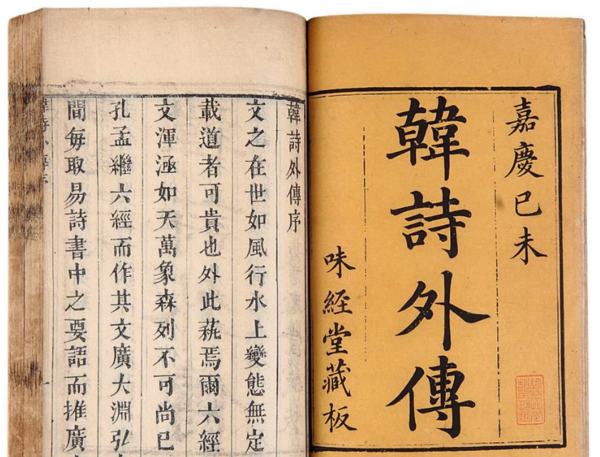 嘉慶己未
韓詩外傳
味經堂藏板
韓詩外傳序
文之在世如風行水上變態無定
載道者可貴也外此蓺焉爾六經
文渾涵如天萬象森列不可尚已
孔孟繼六經而作其文廣大淵弘
間每取易詩書中之要語而推廣